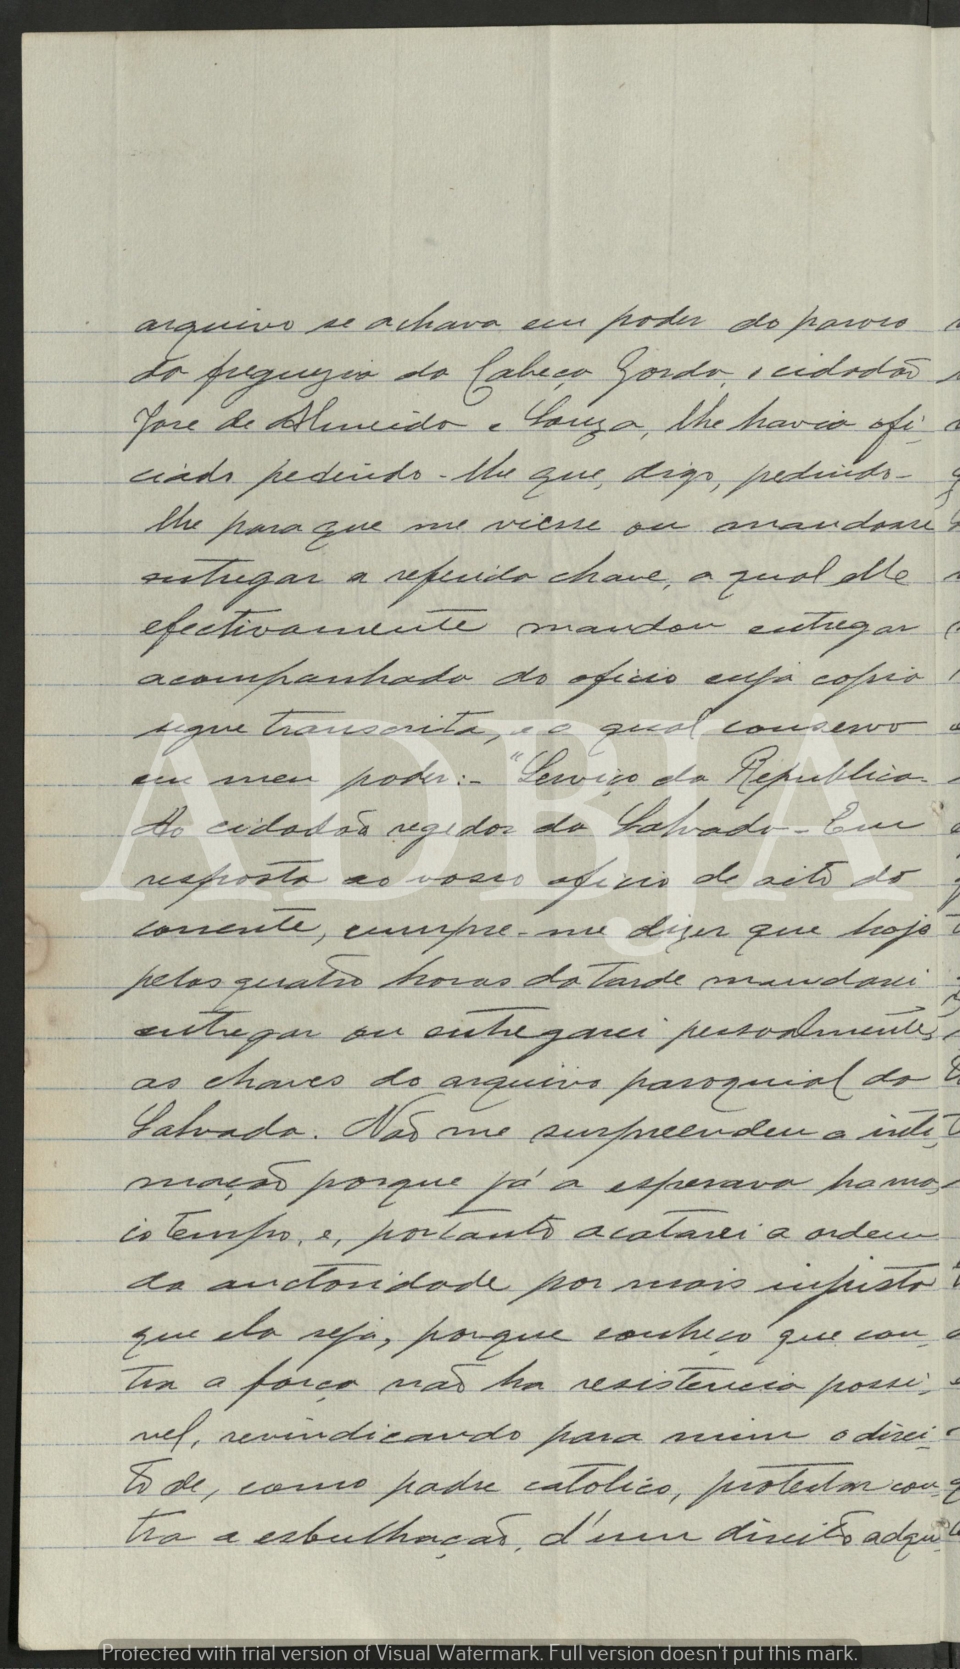 arquivo se achava em poder do paroco
da freguezia da Cabeça Gorda, o cidadão
José de Almeida e Souza, lhe havia ofi-
ciado pedindo-lhe que, digo, pedindo-
lhe para que me viesse ou mandasse
entregar a referida chave, a qual elle
efectivamente mandou entregar
acompanhada do oficio cuja copia
segue transcrita, e o qual conservo
em meu poder:- "Serviço da Republica-
Ao cidadão regedor da Salvada- Em
resposta ao vosso oficio de oito do
corrente, cumpre-me dizer que hoje
pelas quatro horas da tarde mandarei
entregar ou entregarei pessoalmente,
as chaves do arquivo paroquial da
Salvada. Não me surpreendeu a inti-
mação porque já a esperava ha ma-
is tempo, e, portanto acatarei a ordem
da auctoridade por mais injusta
que ela seja, porque conheço que con-
tra a força não ha resistencia possi-
vel, revindicando para mim o direi-
to de, como padre catolico, protestar con-
tra a esbulhação, d'um direito adqui-
ADBJA
Protected with trial version of Visual Watermark. Full version doesn't put this mark.